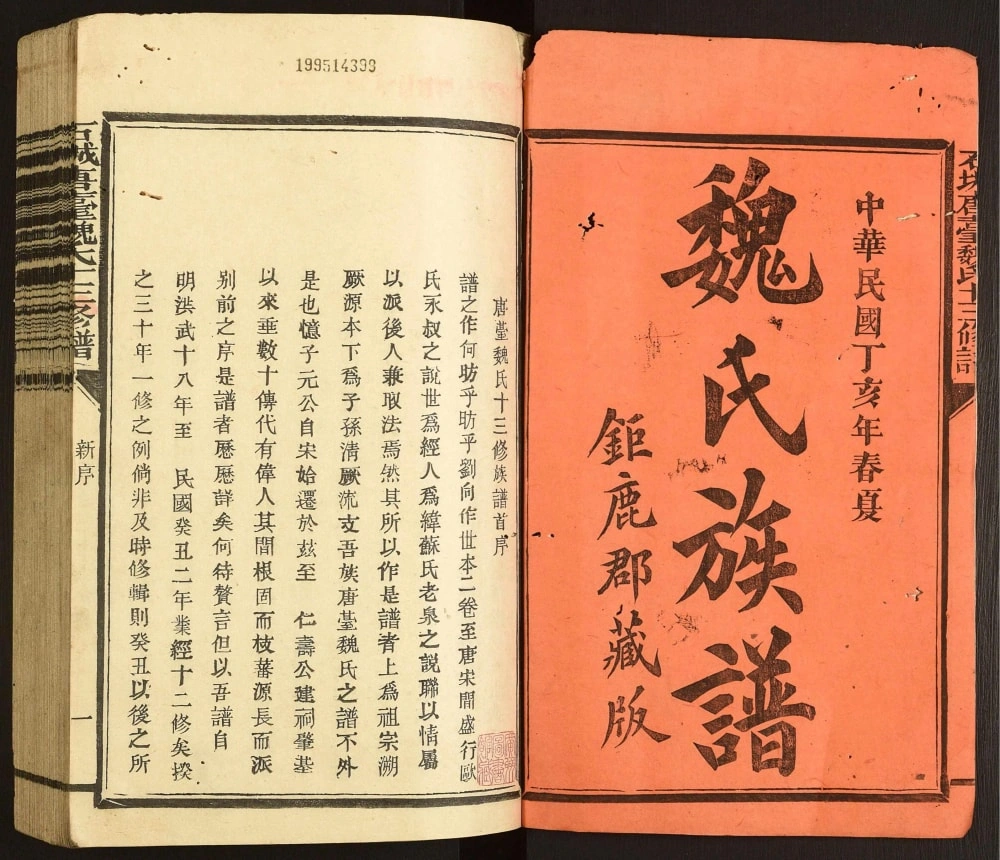 中華民國丁亥年春夏
魏氏族譜
鉅鹿郡藏版
石城唐臺魏氏十三修譜
199514393
唐臺魏氏十三修族譜首序
譜之作何昉乎昉乎劉向作世本二卷至唐宋間盛行歐
氏永叔之說世爲經人爲緯蘇氏老泉之說聯以情屬
以派後人兼取法焉然其所以作是譜者上爲祖宗溯
厥源本下爲子孫淸厥流支吾族唐臺魏氏之譜不外
是也憶子元公自宋始遷於玆至 仁壽公建祠肇基
以來垂數十傳代有偉人其間根固而枝蕃源長而派
别前之序是譜者歷歷詳矣何待贅言但以吾譜自
明洪武十八年至 民國癸丑二年業經十二修矣揆
之三十年一修之例倘非及時修輯則癸丑以後之所
石城唐臺魏氏十三修譜
新序
一